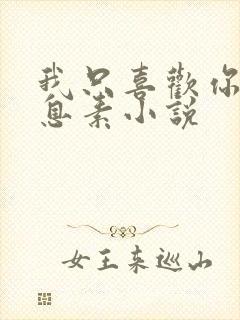 我只喜歡你
息素小說
女王来巡山